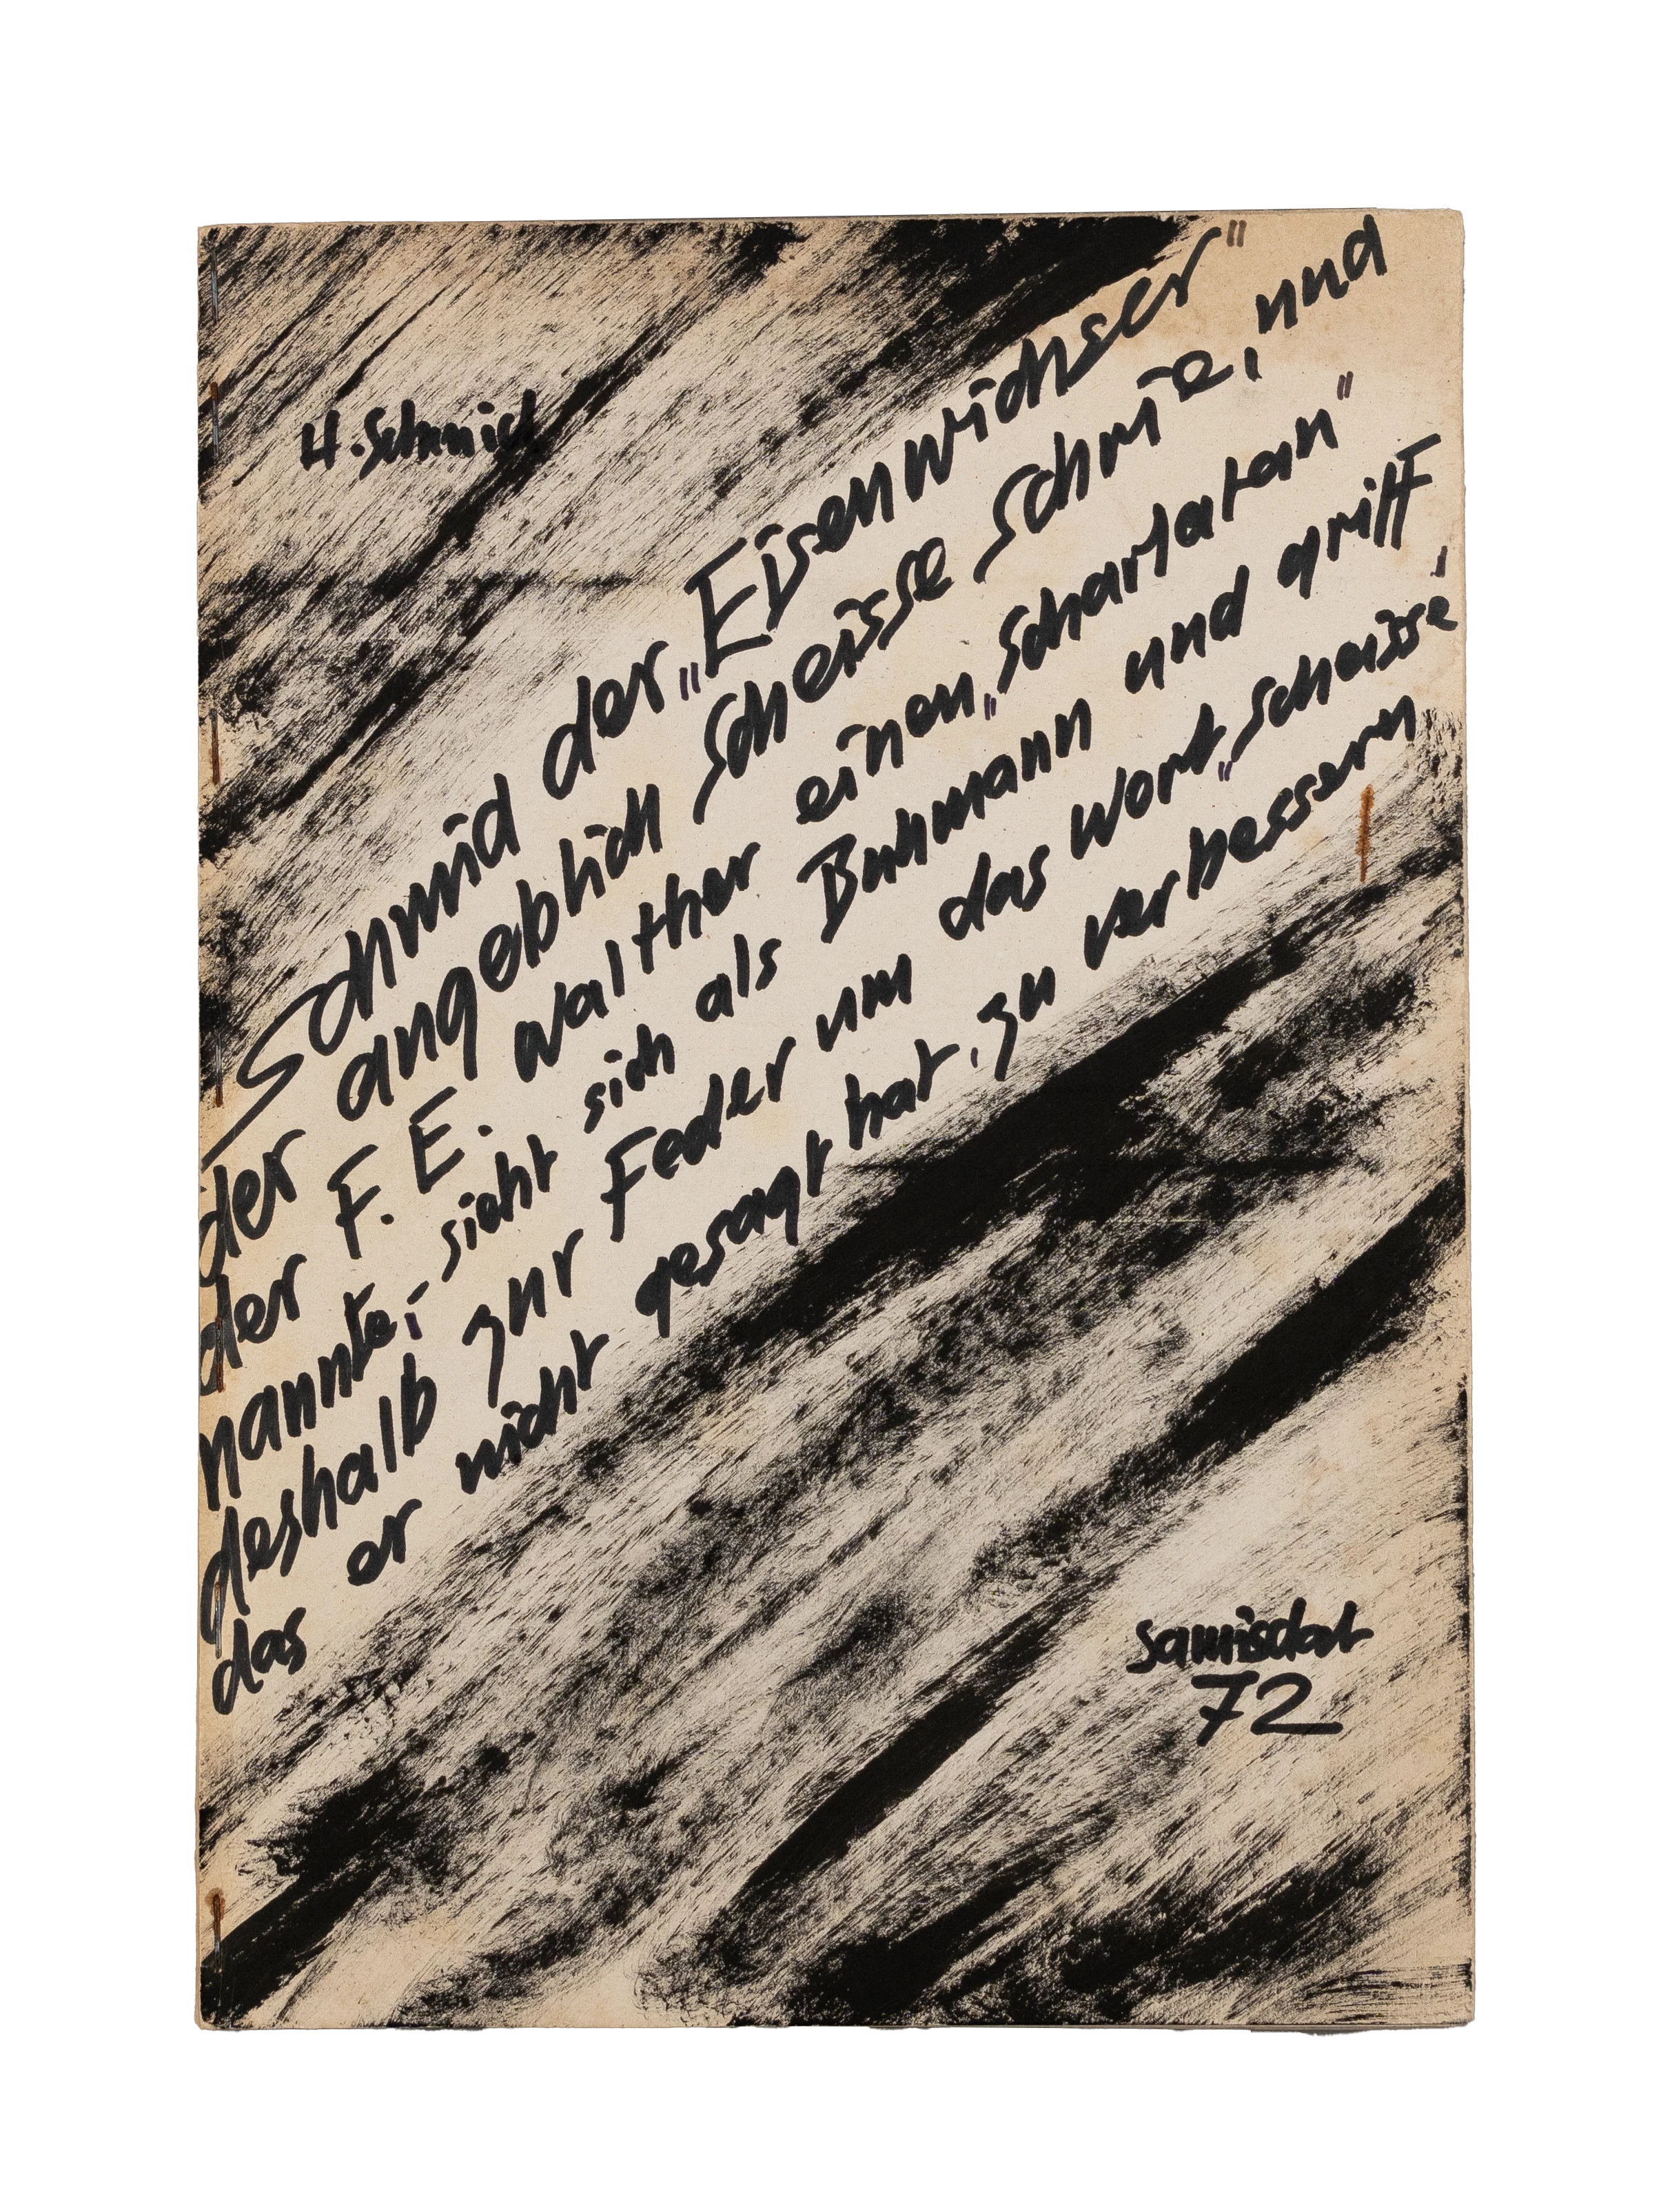 H. Schmid
Schmid der „Eisenwichser"
der angeblich Scheisse schrie, und
der F. E. Walther einen „Scharlatan"
nannte, sieht sich als Buhmann und griff,
deshalb zur Feder um das Wort „Scheisse
das er nicht gesagt hat, zu verbessern
samisdat
72